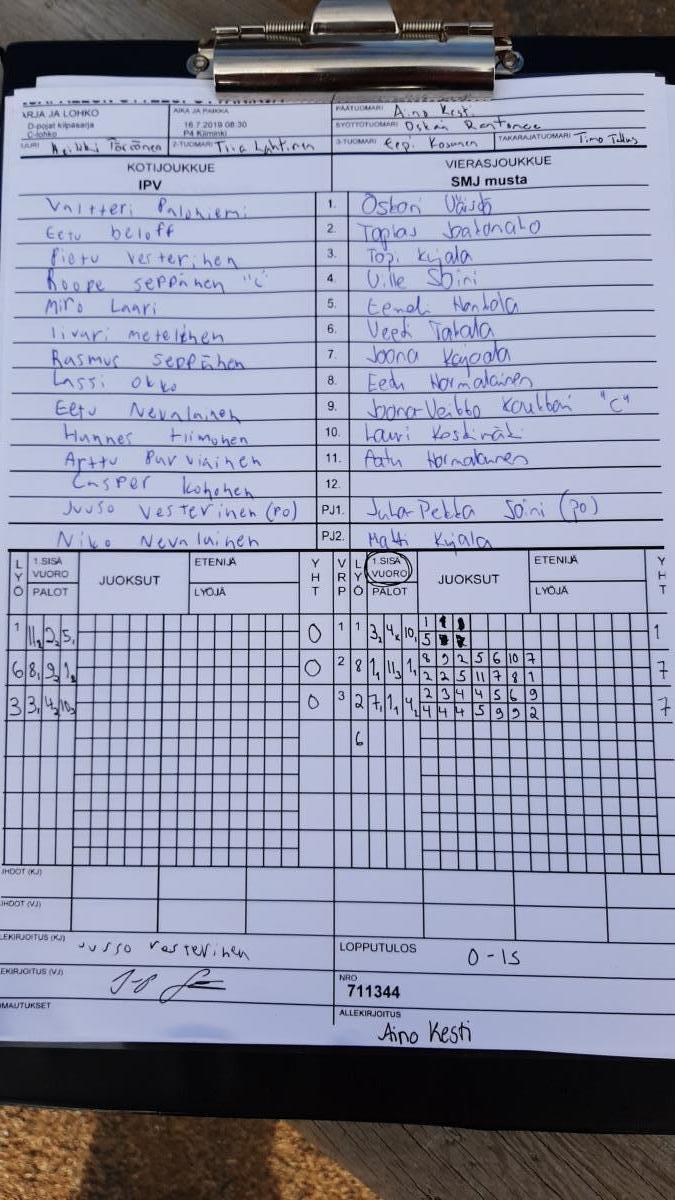 ARJA JA LOHKO
D-pojat kilpasarja
C-lohko
AIKA JA PAIKKA
16.7.2019 08:30
P4 Kiiminki
PÄÄTUOMARI Aino Kesti
SYÖTTÖTUOMARI Oskari
2-TUOMARI Tiia Lahtinen
3-TUOMARI Eepi Kosunen
TAKARAJATUOMARI Timo
KOTIJOUKKUE
IPV
VIERASJOUKKUE
SMJ musta
Valtteri Palohiemi 1. Oskari Väistö
Eetu beloff 2. Topias
Pietu Vesterinen 3. Topi Kujala
Roope Seppänen "C" 4. Ville Soini
Miro Laari 5. Eemeli Hankola
Iivari metelinen 6. Veeti Takala
Rasmus Seppänen 7. Joona
Lassi Okko 8. Eetu Normalainen
Eetu Nevalainen 9. Joona-Veikko "C"
Hannes Hiimonen 10. Lauri Koskimäki
Arttu Purviainen 11. Aatu Hormalainen
Casper Kohonen 12.
Juuso Vesterinen (PO) PJ1. Juha-Pekka Soini (PO)
Niko Nevalainen PJ2. Matti Kujala
LYÖ 1.SISÄ VUORO PALOT JUOKSUT ETENIJÄ LYÖJÄ YHT VRP LYÖ 1.SISÄ VUORO PALOT JUOKSUT ETENIJÄ LYÖJÄ YHT
1 11, 2, 5, 0 1 1 3, 4, 10, 1 1
5
6 8, 9, 1, 0 2 8 1, 11, 1, 8 9 2 5 6 10 7 7
2 2 5 11 7 8 1
3 3, 4, 10, 0 3 2 7, 1, 4, 2 3 4 4 5 6 9 7
4 4 4 5 9 9 2
6
HDOT (KJ)
HDOT (VJ)
LEKIRJOITUS (KJ) Juuso Vesterinen
LOPPUTULOS 0-15
EKIRJOITUS (VJ)
NRO
711344
MAUTUKSET
ALLEKIRJOITUS
Aino Kesti